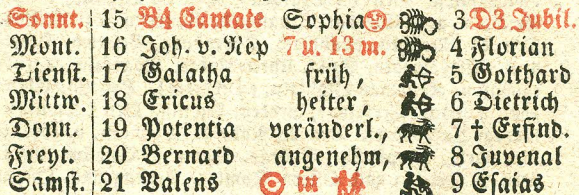 Sonnt. 15 B4 Cantate Sophia 3 D3 Jubil.
Mont. 16 Joh. v. Nep 7 u. 13 m. 4 Florian
Tienst. 17 Galatha früh, 5 Gotthard
Mittw. 18 Ericus heiter, 6 Dietrich
Donn. 19 Potentia veränderl., 7 † Erfind.
Freyt. 20 Bernard angenehm, 8 Juvenal
Samst. 21 Valens ☉ in 9 Esaias